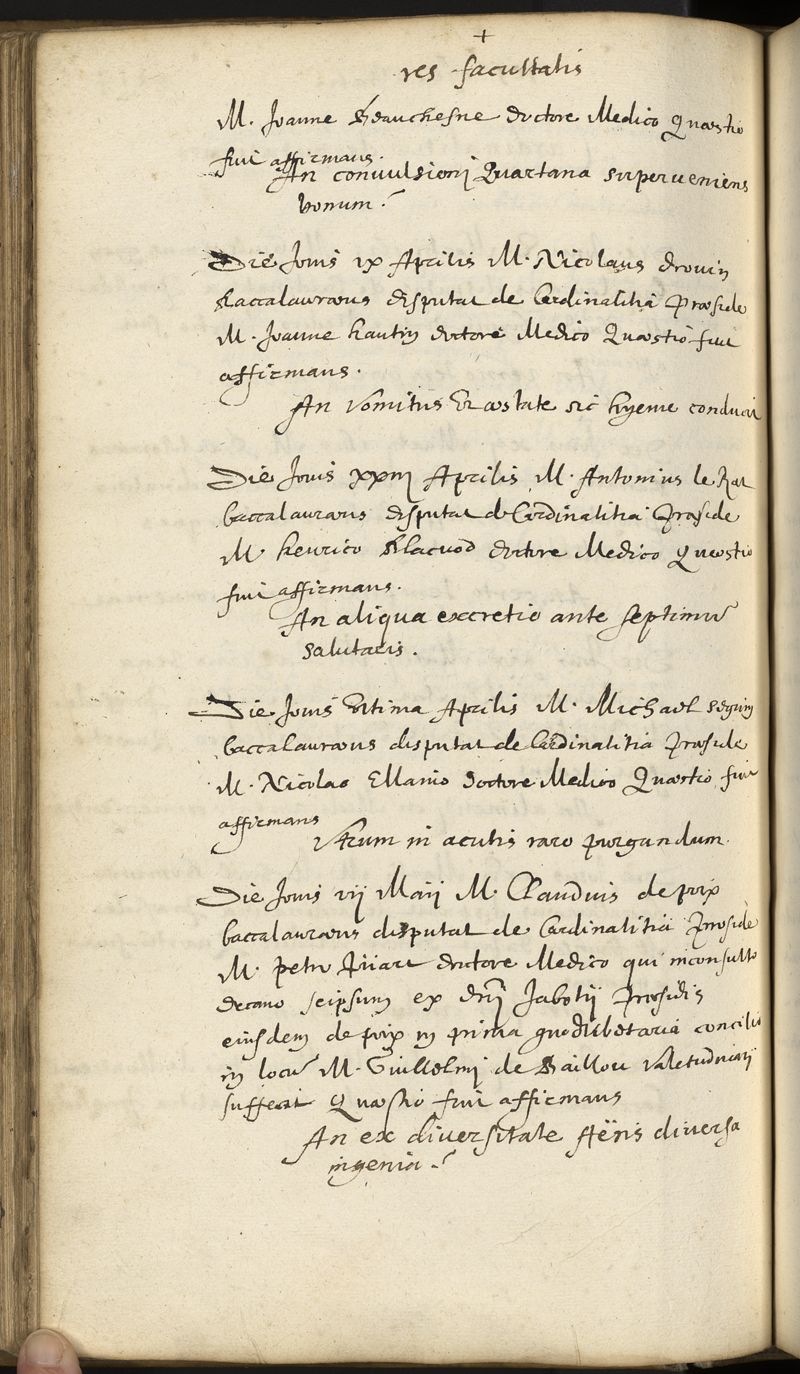 +
res facultatis
M. Joanne Beauchesne doctore Medico Quæstio
fuit affirmans.
An convulsioni Quartana superveniens
bonum?
Die Jovis ix Aprilis M. Nicolaus drouin
baccalaureus disputat de Cardinalitia Præside
M. Joanne hautin doctore Medico Quæstio fuit
affirmans.
An vomitus Ut æstate sic hyeme conducit
Die Jovis xxiij Aprilis M. Antonius le Rat
baccalaureus disputat de Cardinalitia Præside
M. henrico Blacuod doctore Medico Quæstio
fuit affirmans.
An aliqua excretio ante septimū
salutaris.
Die Jovis Ultima Aprilis M. Michael seguin
baccalaureus disputat de Cardinalitia Præside
M. Nicolao Ellanio doctore Medico Quæstio fuit
affirmans
Utrum in acutis raro purgandum.
Die Jovis vij Maij M. Claudius de poix
baccalaureus disputat de Cardinalitia Præside
M. petro Pijart doctore Medico qui inconsulto
decano seipsum ex dn̄i Jabotij Præsidis
eiusdem de poix in prima quodlibetaria concilio
in locū M. Guillelmi de Baillou valetudinarij
suffecit Quæstio fuit affirmans
An ex diversitate Aëris diversa
ingenia?